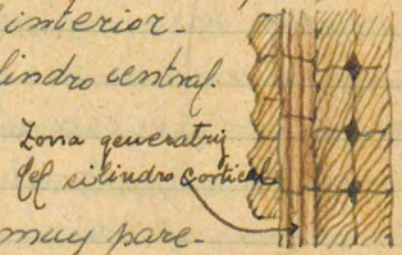 interior.
lindro central.
Zona generatriz
del cilindro cortical
muy pare-